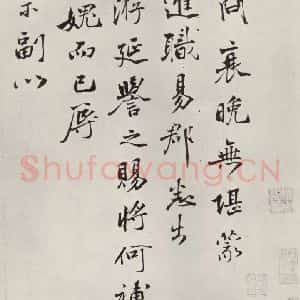 衰晚無堪蒙
進職易郡盖出
游延譽之賜將何補
媿而已辱
示副以
Shufawang.CN